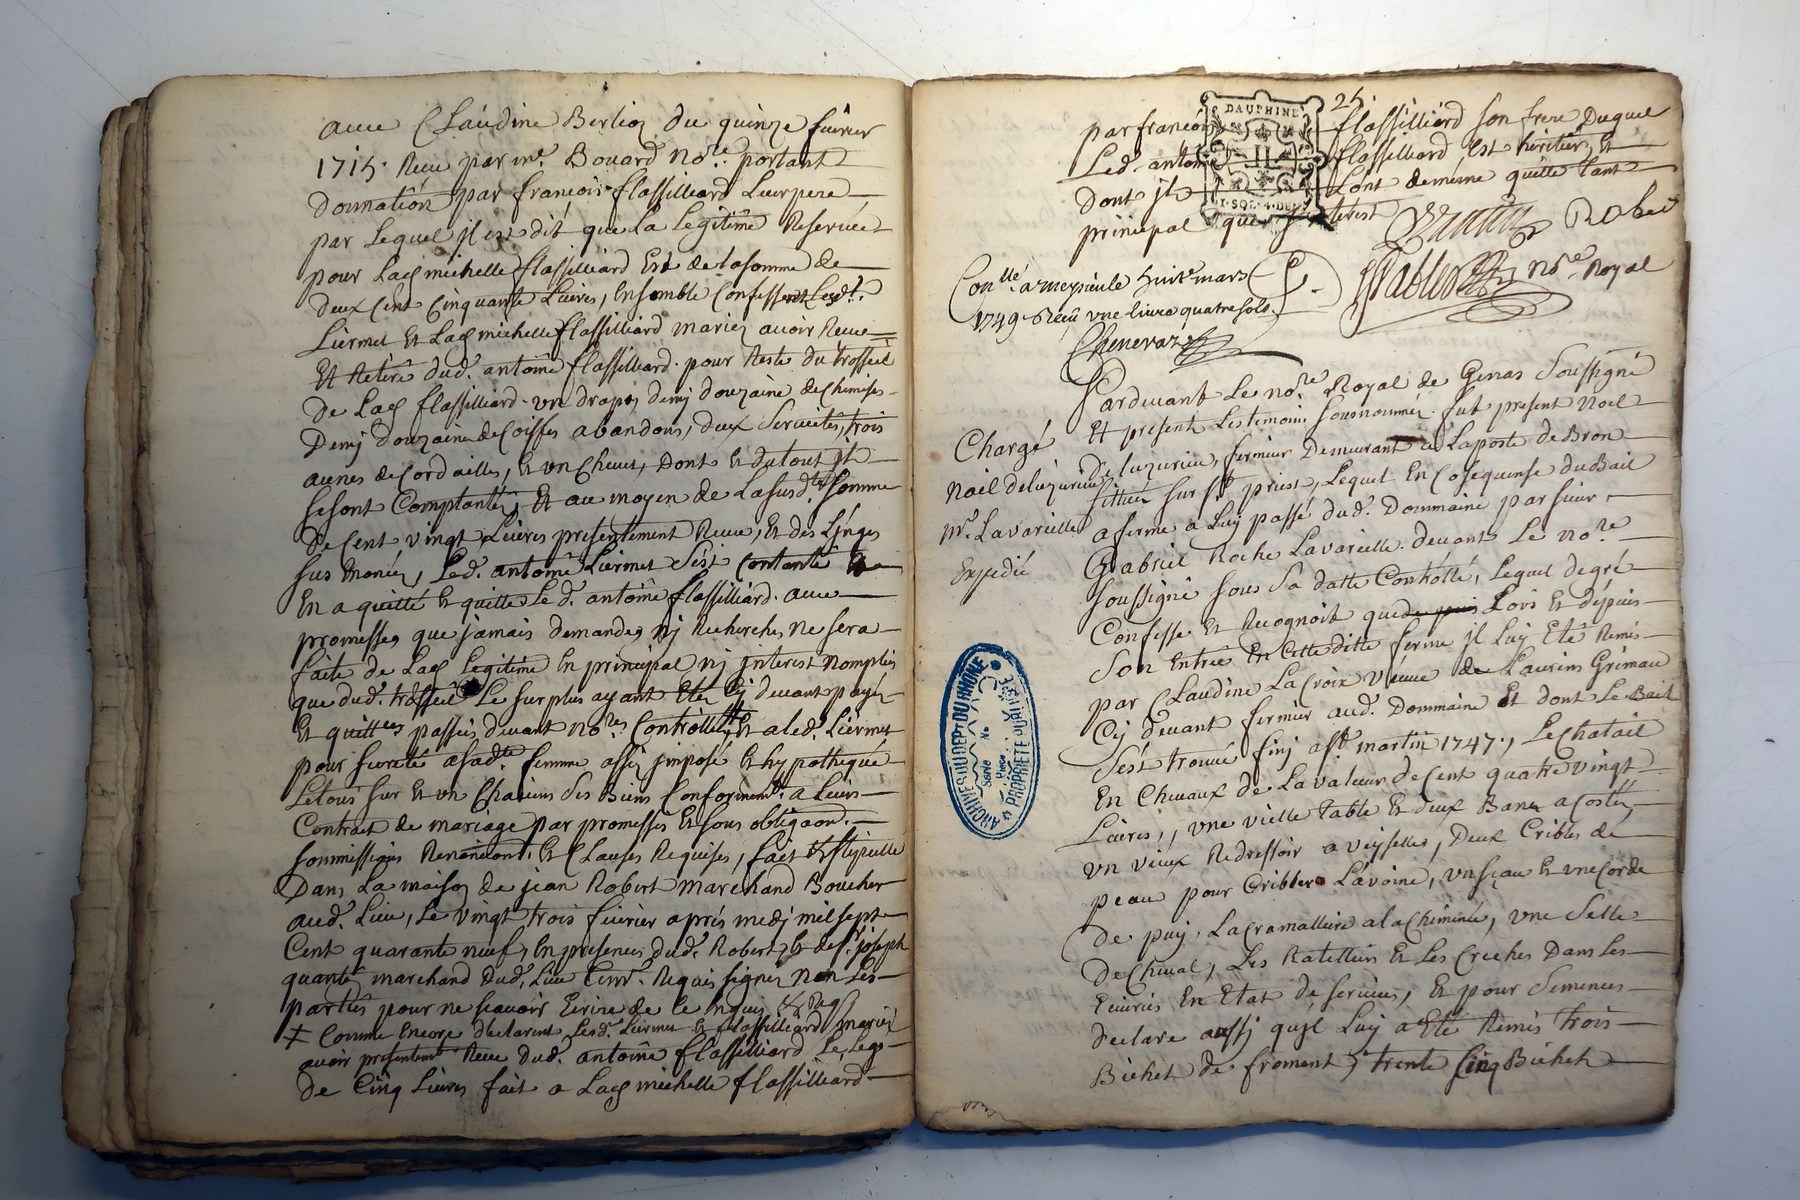 avec Claudine Berlioz du quinze fevrier
1715. Receu par me. Bouard nore. portant
donnation par françois flassilliard Leur pere
par Lequel jl est dit que La Legitime Reservée
pour Lad michelle flassilliard Est de la somme de
deux Cent Cinquante Livres, Ensemble Confessent Lesdt.
Liermet Et Lad michelle flassilliard mariez avoir Receu
Et Retiré dud. antoine flassilliard pour Reste du trosseil
de Lad flassilliard un drap, demj douzaine de Chemises
Demj douzaine de Coiffes abandons, deux Serviettes, trois
aunes de Cordailles, Et un Chevet, Dont Et du tout jl
se sont Comptantés, Et au moyen de La susdte. somme
de Cent vingt Livres presentement Receue, Et des Linges
sus, Led. antoine Liermet s'est Contanté
En a quitté Et quitte Le d. antoine flassilliard. avec
promesses que jamais demandes nj Recherches ne sera
faite de Lad Legitime En principal nj jnterest nomplus
que dud. trosseil Le surplus ayant Eté Cj devant payé
Et quittces passés devant nores Controllés, Et a led. Liermet
pour sureté a sadte femme assis jmposé Et hypothequé
Le tout sur Et un Chacuns ses Biens Conforment. a Leurs
Contract de mariage par promesses Et sous obligaon.
soummissions Renoncions. Et Clauses Requises, fait Et stipullé
Dans La maison de jean Robert marchand Boucher
aud. Lieu, Le vingt trois fevrier aprés medj mil sept
Cent quarante neuf, En presences dud. Robert, Et de sr. joseph
quanté marchand dud. Lieu Requis signer non Les
parties pour ne sçavoir Ecrire de ce Enquis
‡ Comme Encore declarent Lesd. Liermet Et flassilliard mariés
avoir presentemt Receu dud. antoine flassilliard Le Legs
de Cinq Livres fait a Lad michelle flassilliard
25.
DAUPHINE
1. SOL. 4. DEN.
par françois flassilliard son frere Duquel
Led. antoine flassilliard est heritier, Et
Dont jls L'ont demême quitté tant
principal que jnterest
Robert
nore. Royal
Conllé a meyzieule huit mars
1749 Receu une livre quatre sols
Chenevaz
Pardevant Le nore Royal de Genas Soussigné
Et present Les temoins sousnommés fut present Noel
Chargé
Noel deluzurieu
Mr. Lavareille
Expedié
De luzurieu, fermier Demeurant a La poste de Bron
sittué sur st priest, Lequel En Cosequense du Bail
a ferme a Luy passé dud. Dommaine par sieur
Gabriel Roche Lavareille devant Le nore
soussigné sous sa datte Controllé, Lequel de gré
Confesse Et Recognoit que depuis Lors Et depuis
Son Entrée En Cette ditte ferme jl Luy Eté Remis
par Claudine La Croix veuve de Laurens Grimau
Cy devant fermier aud. Dommaine Et dont Le Bail
s'est trouvé finj a st martin 1747., Le Chatail
En Chevaux de La valeur de Cent quatre vingt
Livres,, une vielle table Et deux Bancs a Costés,
un vieux Redressoir a veysselles, Deux Cribles de
peau pour Cribler L'avoine, un sçeau Et une Corde
de puy, La Cramalliere a la Cheminée, une Selle
de Cheval, Les Ratelliers Et Les Creches Dans Les
Ecuries En Etat de services, Et pour Semences
declare aussj qu'jl Luy a Eté Remis trois
Bichet de froment, trente Cinq Bichets
ARCHIVES DU DÉPT DU RHONE
Série No
Pièce
PROPRIÉTÉ PUBLIQUE